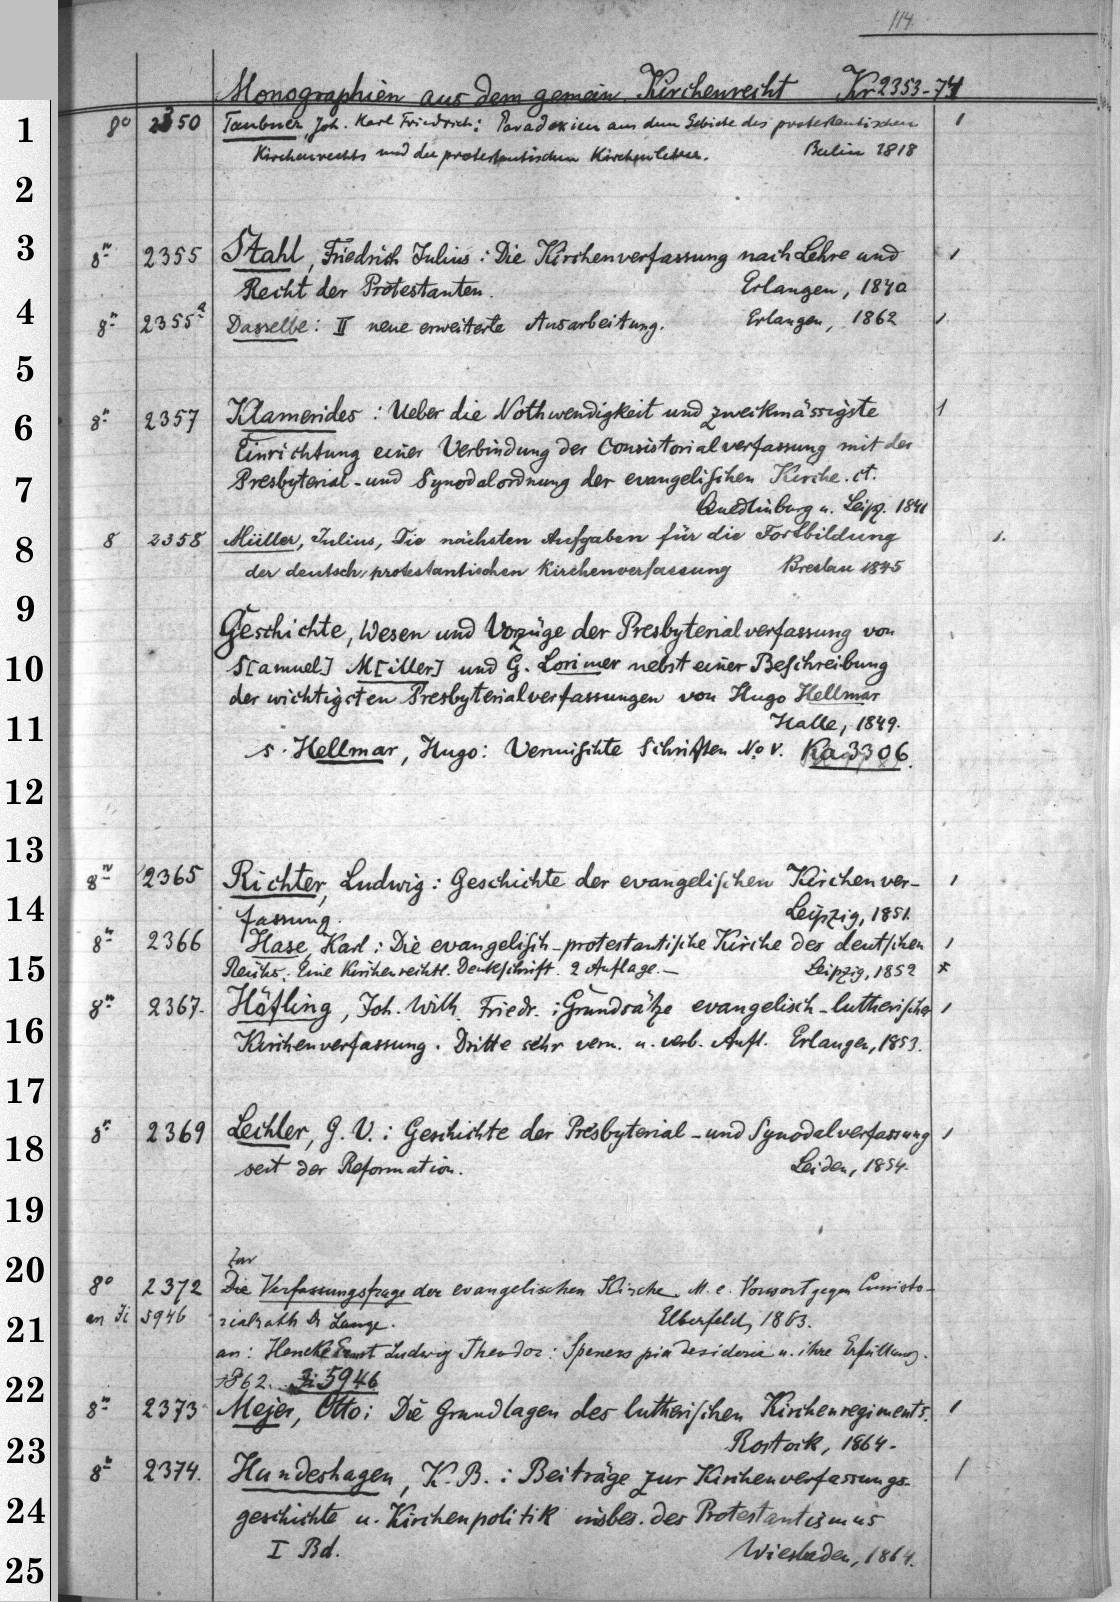 114.
Monographien aus dem gemein. Kirchenrecht Kr 2353-74
1 8o 2350 Taubner, Joh. Karl Friedrich: Paradoxien aus dem Gebiete des protestantischen 1
Kirchenrechts und der protestantischen Kirchenlehre. Berlin 1818
2
3 8° 2355 Stahl, Friedrich Julius: Die Kirchenverfassung nach Lehre und 1
Recht der Protestanten. Erlangen, 1840
4 8° 2355a Dasselbe: II neue erweiterte Ausarbeitung. Erlangen, 1862 1.
5
6 8° 2357 Klamerides: Ueber die Nothwendigkeit und zweikmässigste 1
Einrichtung einer Verbindung der Consistorialverfassung mit der
7 Presbyterial-und Synodalordnung der evangelischen Kirche. ct.
Quedlinburg u. Leipz. 1841
8 8 2358 Müller, Julius, Die nächsten Aufgaben für die Fortbildung 1.
der deutsch. protestantischen Kirchenverfassung Breslau 1845
9 Geschichte, Wesen und Vorzüge der Presbyterialverfassung von
10 S[amuel] M[iller] und G. Lorimer nebst einer Beschreibung
der wichtigsten Presbyterialverfassungen von Hugo Hellmar
11 Halle, 1849.
s. Hellmar, Hugo: Vermischte Schriften No V. Ka 3306.
12
13 8° 2365 Richter, Ludwig: Geschichte der evangelischen Kirchenver- 1
14 fassung. Leipzig, 1851.
8° 2366 Hase, Karl: Die evangelisch-protestantische Kirche des deutschen 1
15 Reichs. Eine Kirchenrechtl. Denkschrift. 2 Auflage.— Leipzig, 1852 x
8° 2367. Höfling, Joh. Wilh. Friedr.: Grundsätze evangelisch-lutherischer 1
16 Kirchenverfassung. Dritte sehr verm. u. verb. Aufl. Erlangen, 1853.
17
18 8° 2369 Lechler, G. V.: Geschichte der Presbyterial-und Synodalverfassung 1
seit der Reformation. Leiden, 1854.
19
Zur
20 8o 2372 Die Verfassungsfrage der evangelischen Kirche. M. e. Vorwort gegen Consisto-
21 an Ji 5946 rialrath Dr Lange. Elberfeld, 1863.
an: Hencke Ernst Ludwig Theodor: Speners pia desideria u. ihre Erfüllung.
22 1862. Ji 5946
8° 2373 Mejer, Otto: Die Grundlagen des lutherischen Kirchenregiments. 1
23 Rostock, 1864.
8° 2374. Hundeshagen, K. B.: Beiträge zur Kirchenverfassungs- 1
24 geschichte u. Kirchenpolitik insbes. des Protestantismus
25 I Bd. Wiesbaden, 1864.